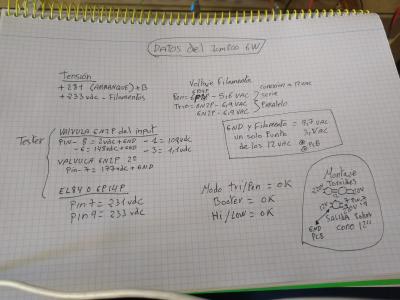 DATOS del ZAMBOO 6W
Tensión
+281 (ARRANQUE) +B
+233 vdc - Filamentos
Voltaje Filamento
6P14P
Pen = - 5,6 VAC
Trio = 6N2P - 6,9 VAC
6N2P - 6,9 VAC
conexion a 12 VAC
serie
Paralelo
Tester
VALVULA 6N2P del input
PIN - 8 = 2vdc + GND - 1 = 109vdc
- 6 = 148vdc + GND - 3 = 1,1vdc
VALVULA 6N2P 2º
Pin - 7 = 177vdc + GND
EL84 O 6P14P
Pin 7 = 231 vdc
Pin 9 = 233 vdc
GND y Filamento = 8,7 VAC
un solo Punto 3,1 VAC
de los 12 VAC @ PCB
Modo tri/Pen = OK
Booter = OK
Hi/Low = OK
Montaje
Toroides
12v
GND
PCB
Salida
cono 12"